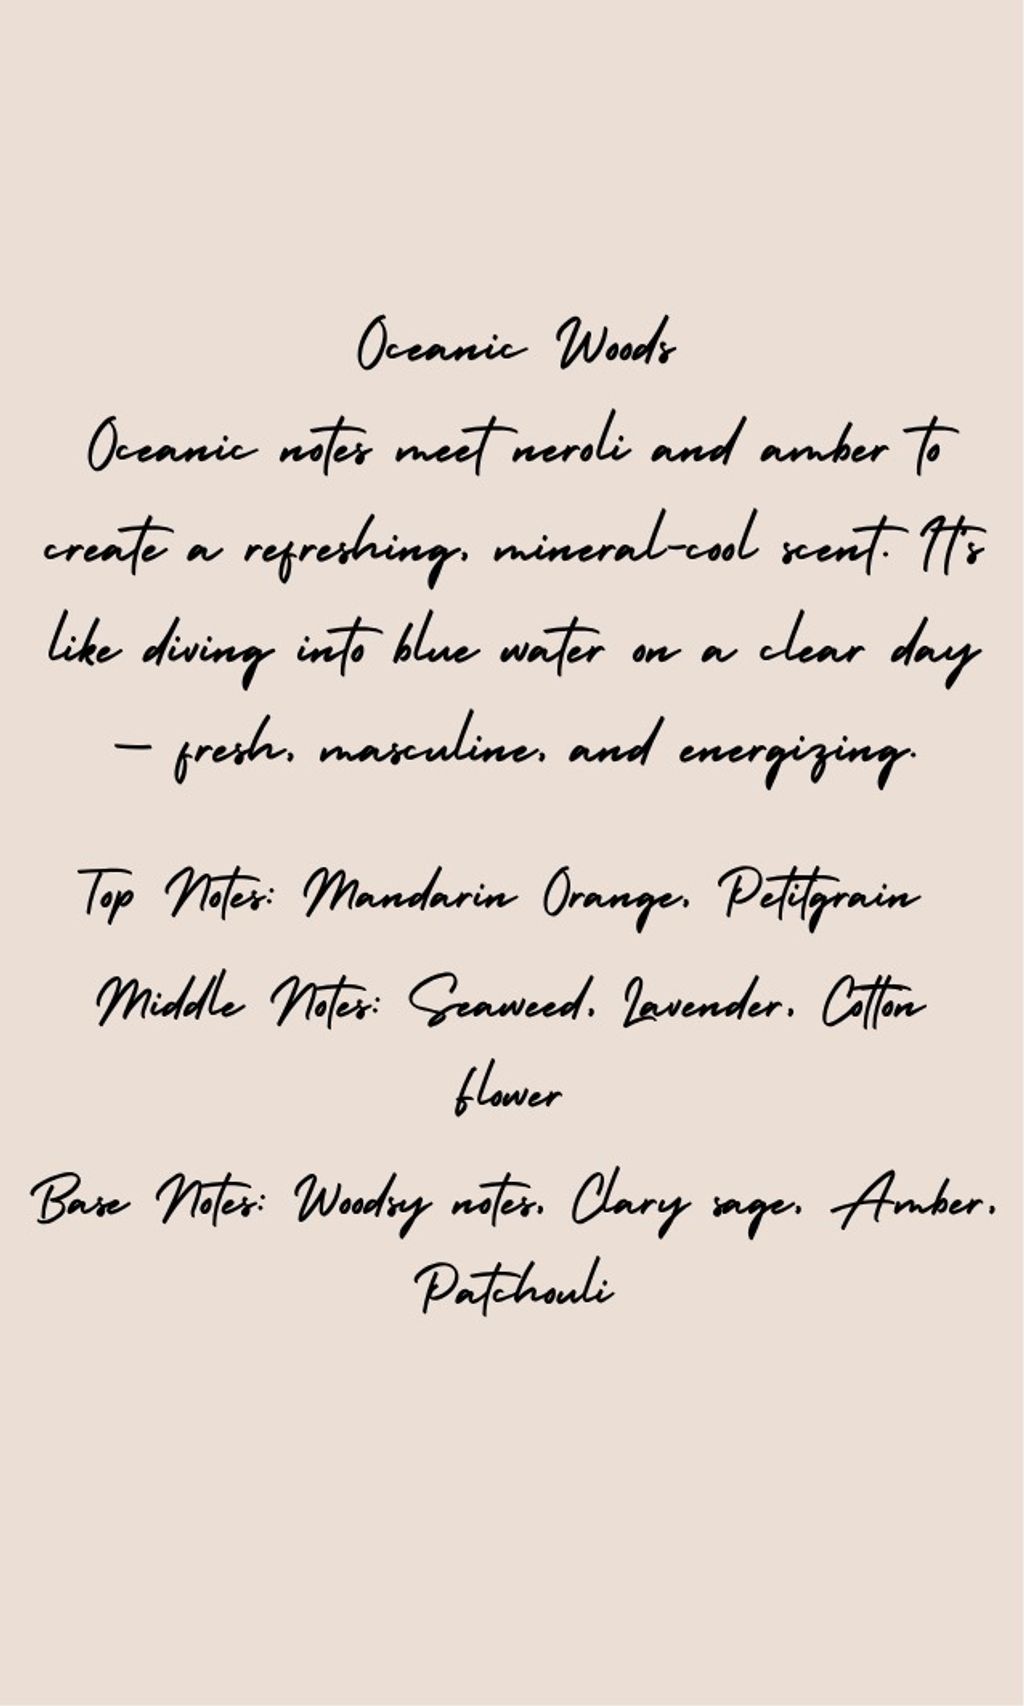 Oceanic Woods
Oceanic notes meet neroli and amber to
create a refreshing, mineral-cool scent. It's
like diving into blue water on a clear day
— fresh, masculine, and energizing.
Top Notes: Mandarin Orange, Petitgrain
Middle Notes: Seaweed, Lavender, Cotton
flower
Base Notes: Woodsy notes, Clary sage, Amber,
Patchouli